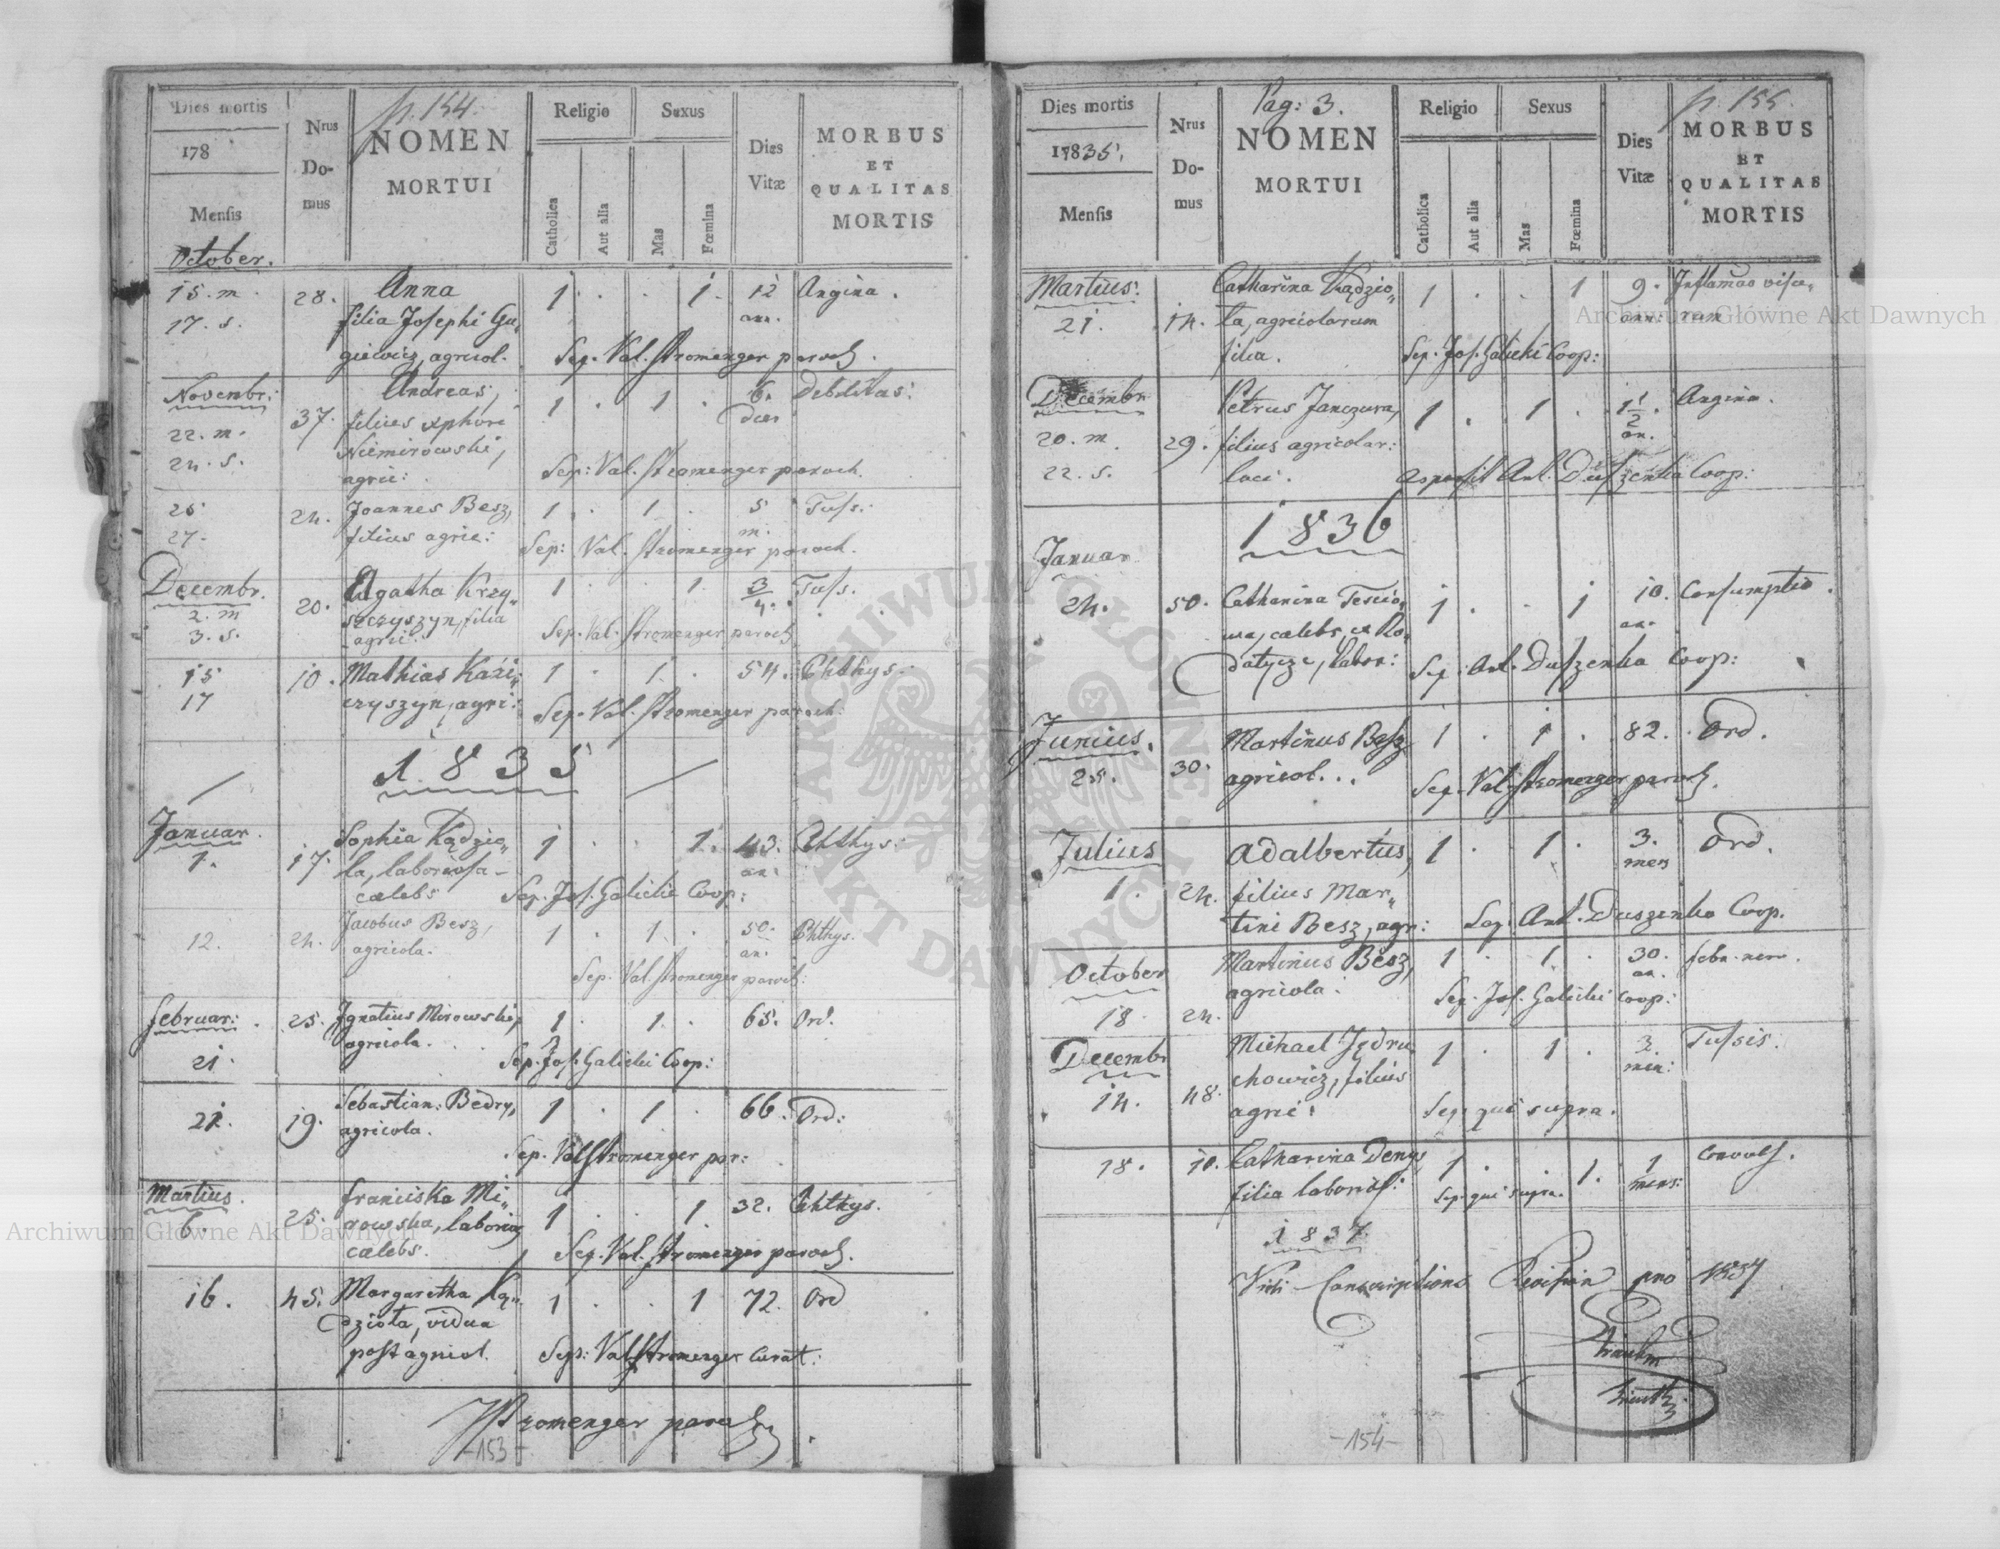 p. 154.
Dies mortis
178
Mensis
October.
Nrus
Do-
mus
NOMEN
MORTUI
Religio
Catholica
Aut alia
Sexus
Mas
Fœmina
Dies
Vitæ
MORBUS
ET
QUALITAS
MORTIS
15. m. 28. Anna 1 . . 1. 12 Angina.
17. s. filia Josephi Gu- ann.
giewicz, agricol. Sep. Val. Stromenger paroch.
Novembr: Andreas, 1 . 1 . 6. Debilitas:
22. m. 37. filius Xphori dies
24. s. Niemirowski,
agric: Sep: Val. Stromenger paroch.
26 24. Joannes Besz, 1 . 1 . 5 Tuss:
27. filius agric: m.
Sep: Val. Stromenger paroch.
Decembr. Agatha Krzy- 1 . . 1. 3/4. Tuss.
2. m 20. szczyszyn, filia
3. s. agric: Sep. Val. Stromenger paroch
15 10. Mathias Kazi- 1 . 1 . 54. Phthys:
17 czyszyn, agri: Sep. Val. Stromenger paroch:
1835
Januar. Sophia Kądzio- 1 . . 1. 43. Phthys:
1. 17. la, laboriosa an:
cælebs Sep. Jos. Galicki Coop:
12. 24. Jacobus Besz, 1 . 1 . 50. Phthys.
agricola. an.
Sep. Val Stromenger paroch:
Februar: 25. Ignatius Mirowski, 1 . 1 . 65. Ord.
21. agricola. Sep. Jos. Galicki Coop:
21. 19. Sebastian: Bedry, 1 . 1 . 66. Ord:
agricola.
Sep. Val Stromenger par:
Martius. Franciska Mi- 1 . . 1 32. Phthys.
6. 25. rowska, laborios
cælebs. Sep. Val. Stromenger paroch.
16. 45. Margaretha Ką- 1 . . 1 72. Ord
dziola, vidua
post agricol. Sep: Val Stromenger Curat:
Stromenger paroch
-153-
Pag: 3.
p. 155.
Dies mortis
17835.
Mensis
Nrus
Do-
mus
NOMEN
MORTUI
Religio
Catholica
Aut alia
Sexus
Mas
Fœmina
Dies
Vitæ
MORBUS
ET
QUALITAS
MORTIS
Martius. Catharina Kądzio- 1 . . 1 9. Inflamão visce-
21. 14. la, agricolarum ann: rum
filia. Sep. Jos. Galicki Coop:
Decembr Petrus Janczura, 1 . 1 . 1 1/2. Angina.
20. m. 29. filius agricolar: an.
22. s. loci. aspersit Ant. Duszenko Coop:
1836
Januar
24. 50. Catharina 1 . . 1 10. Consumptio.
wa, cælebs, ex Ro- an.
datycze, labor: Sep. Ant. Duszenko Coop:
Junius. Martinus Besz 1 . 1 . 82. Ord.
25. 30. agricol. . . Sep. Val. Stromenger paroch.
Julius Adalbertus, 1 . 1 . 3. Ord.
1. 24. filius Mar- mens
tini Besz, agr: Sep. Ant. Duszenko Coop.
October Martinus Besz, 1 . 1 . 30. febr. nerv.
18 24. agricola. an. Sep. Jos. Galicki Coop:
Decembr Michael Jędru- 1 . 1 . 3. Tussis.
14. 48. chowicz, filius men:
agric: Sep: qui supra.
18. 10. Catharina Denys 1 . . 1. 1 Convuls.
filia laborios: Sep. qui supra. mens:
1837
Vidi Conscriptions Revision pro 1837
-154-
Archiwum Główne Akt Dawnych
Archiwum Główne Akt Dawnych
ARCHIWUM GŁÓWNE AKT DAWNYCH